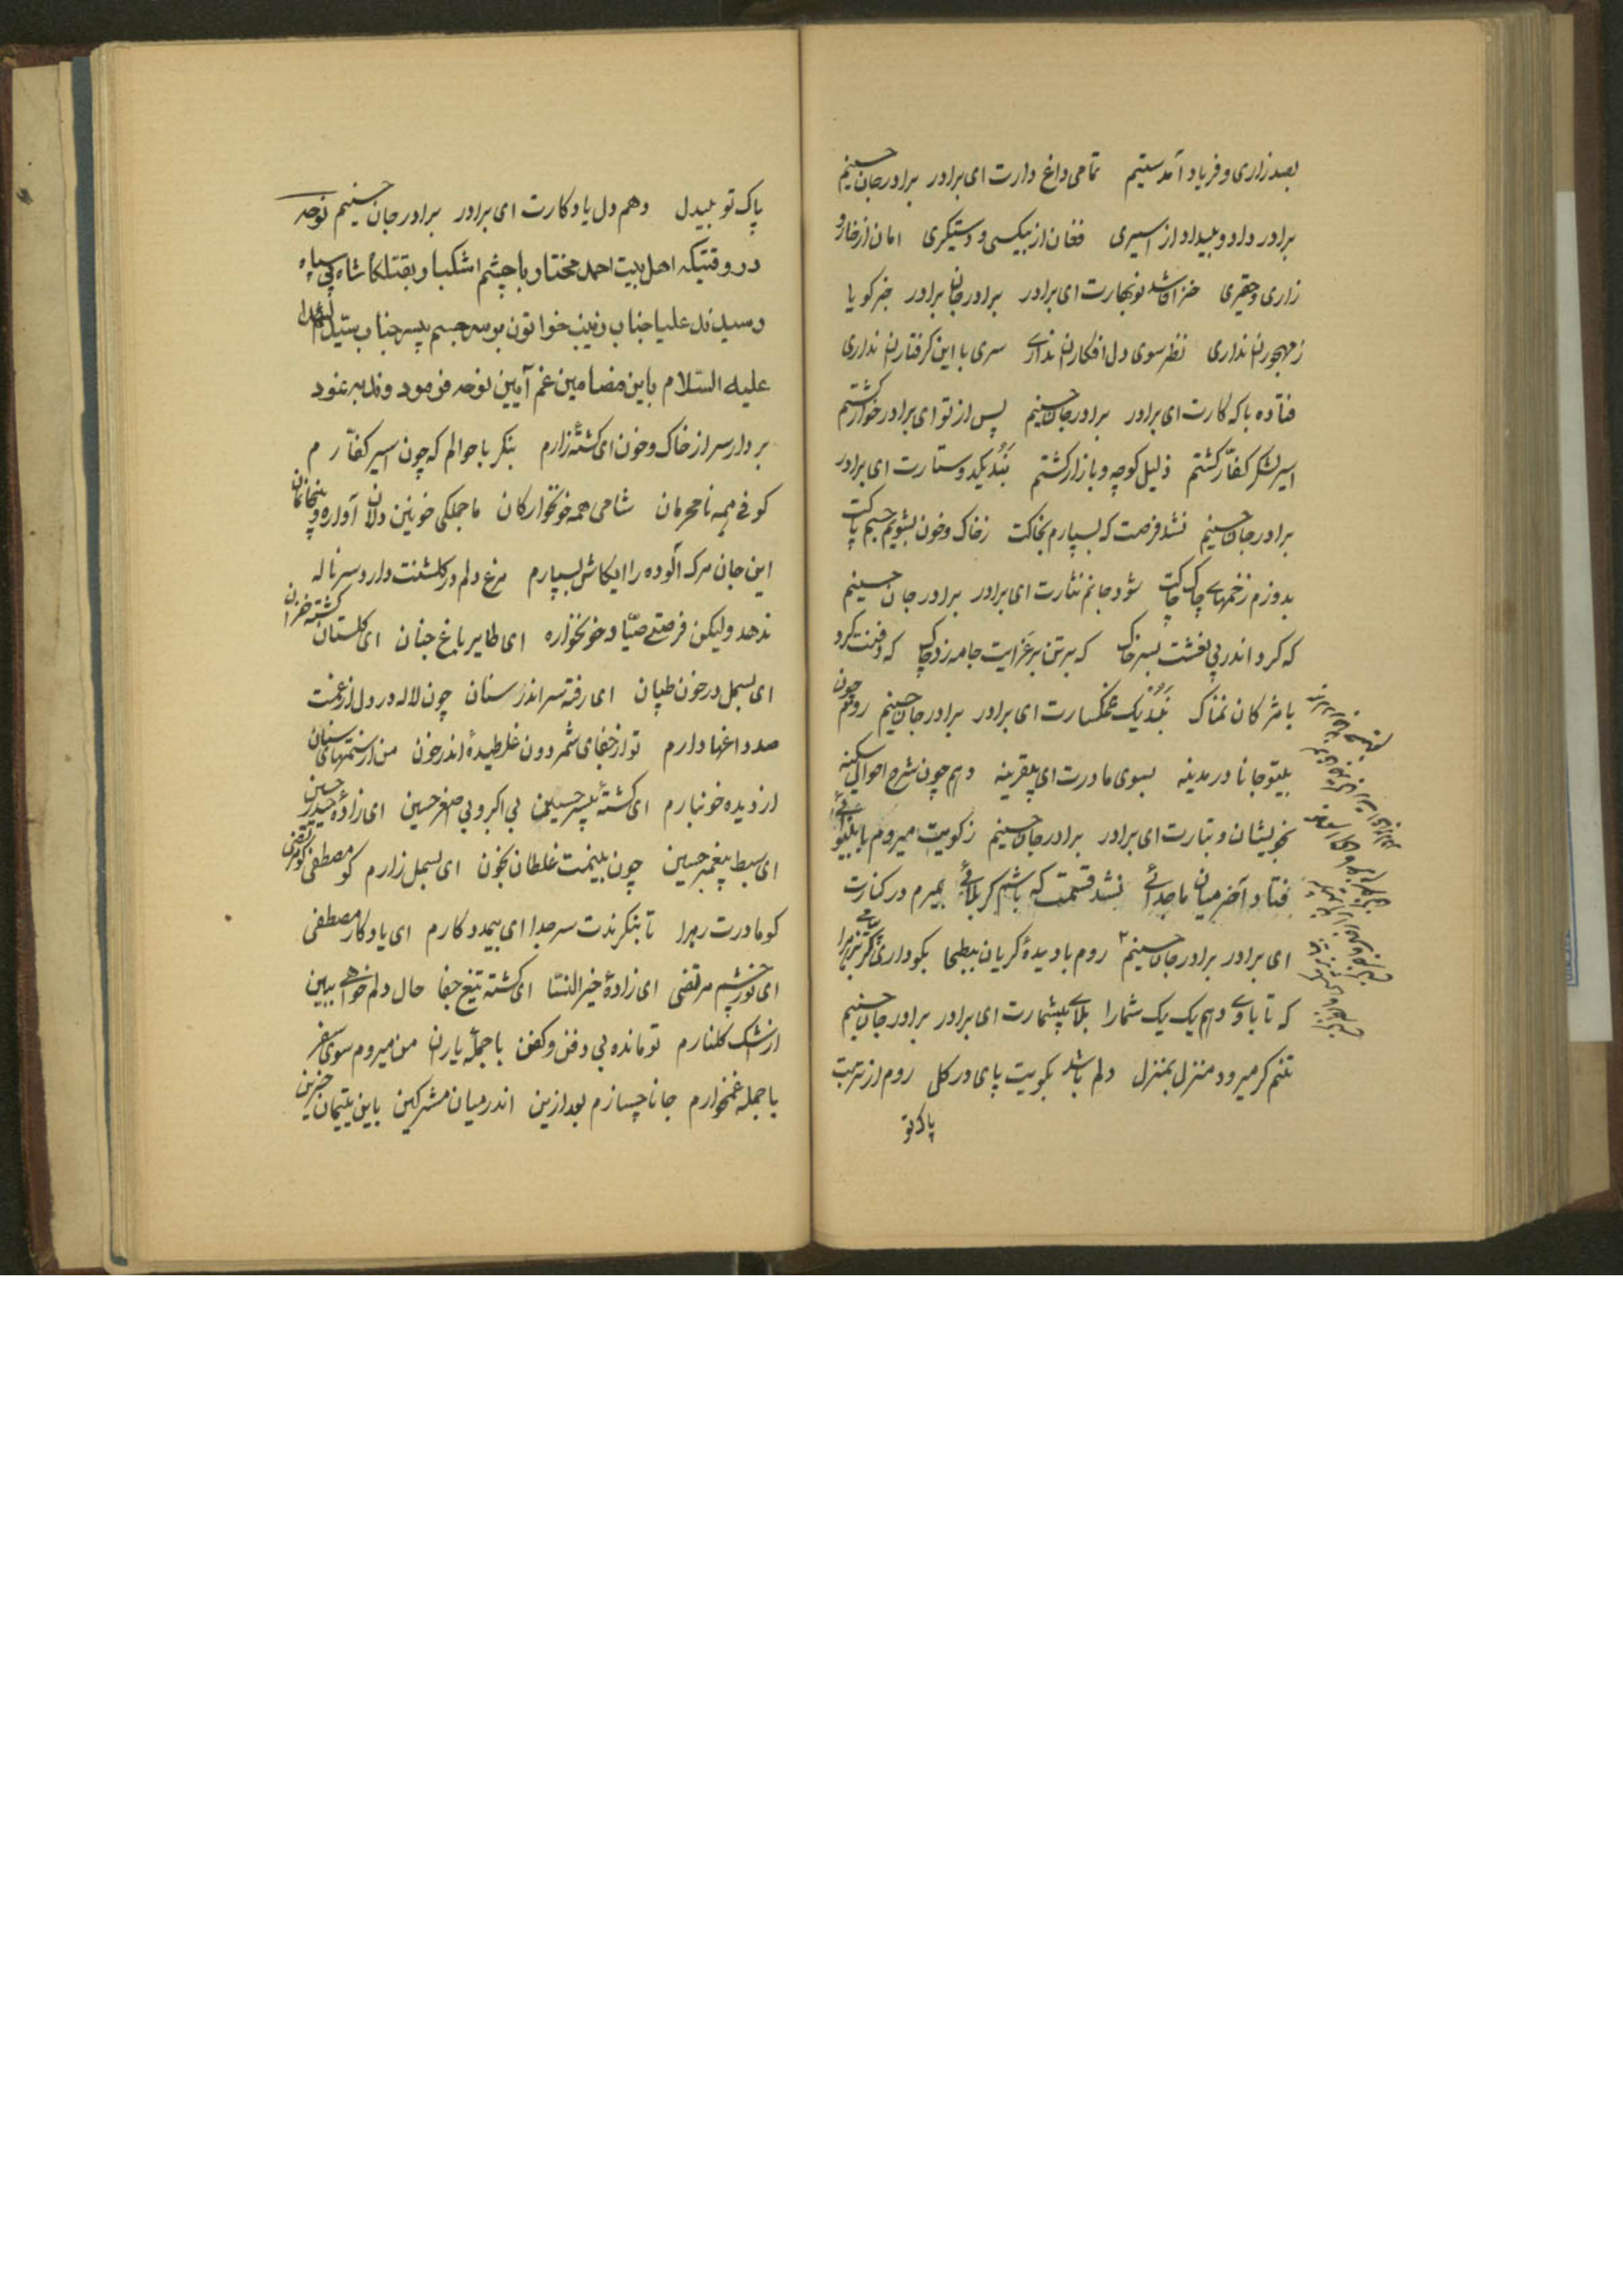 بصد زاری و فریاد آمدستیم تمامی داغ دارت ای برادر برادر جان حسینم
برادر داد و بیداد از اسیری فغان از بیکسی و دستگیری امان از خار و
زاری و حقیری خزان شد نوبهارت ای برادر برادر جان برادر خبر گویا
ز مهجوران نداری نظر سوی دل افکاران نداری سری با این گرفتاران نداری
فتاده با که کارت ای برادر برادر جان حسینم پس از تو ای برادر خوار گشتم
اسیر لشکر کفّار گشتم ذلیل کوچه و بازار گشتم ای برادر
برادر جان حسینم نشد فرصت که بسپارم بخاکت ز خاک و خون بشویم جسم پاکت
بدوزم زخمهای چاک چاکت شود جانم نثارت ای برادر برادر جان حسینم
که کرد اندر پی نعشت بسر خاک که بر تن بر عزایت جامه زد چاک که دفنت کرد
با مژکان نمناک نبد یک غمگسارت ای برادر برادر جان حسینم روم چون
بیتو جانا در مدینه بسوی مادرت ای بیقرینه دهم چون شرح احوال سکینه
بخویشان و تبارت ای برادر برادر جان حسینم ز کویت میروم با بینوائی
فتاد آخر میان ما جدائی نشد قسمت که باشم کربلائی بمیرم در کنارت
ای برادر برادر جان حسینم روم با دیدهٔ گریان ببطحا بگو داری
که تا با وی دهم یک یک شما را بلای بیشمارت ای برادر برادر جان حسینم
تنم گر میرود منزل بمنزل دلم باشد بکویت پای در گل روم از تربت
پاک تو
پاک تو بیدل دهم دل یادگارت ای برادر برادر جان حسینم نوحه
در وقتیکه اهل بیت احمد مختار با چشم اشکبار بقتلگاه شاه بی سپاه
رسیدند علیا جناب زینب خواتون بر سر جسم بی سر جناب سیّد الشهدا
علیه السّلام باین مضامین غم آیین نوحه فرمود و ندبه نمود
بردار سر از خاک و خون ای کشتهٔ زارم بنکر باحوالم که چون اسیر کفّارم
کوفی همه نامحرمان شامی همه خونخوارکان ما جملکی خونین دلان آواره و بیخانمان
این جان مرک آلوده را ایکاش بسپارم مرغ دلم در کلشنت دارد سر ناله
ندهد ولیکن فرصتی صیّاد خونخواره ای طایر باغ جنان ای کلستان کشته خزان
ای بسمل در خون طپان ای رفته سر اندر سنان چون لاله در دل از غمت
صد داغها دارم تو از جفای شمر دون غلطیدهٔ اندر خون من از ستمهای سنان
از دیده خونبارم ای کشتهٔ بیسر حسین بی اکبر و بی اصغر حسین ای زادهٔ حیدر حسین
ای سبط پیغمبر حسین چون بینمت غلطان بخون ای بسمل زارم کو مصطفی کو مرتضی
کو مادرت زهرا تا بنکرندت سر جدا ای بیمددکارم ای یادکار مصطفی
ای نور چشم مرتضی ای زادهٔ خیر النّسا ای کشته تیغ جفا حال دلم خواهی ببین
از اشک کلنارم تو مانده بی دفن و کفن با جملهٔ یاران من میروم سوی سفر
با جمله غمخوارم جانا چسازم بعد ازین اندر میان مشرکین باین یتیمان حزین